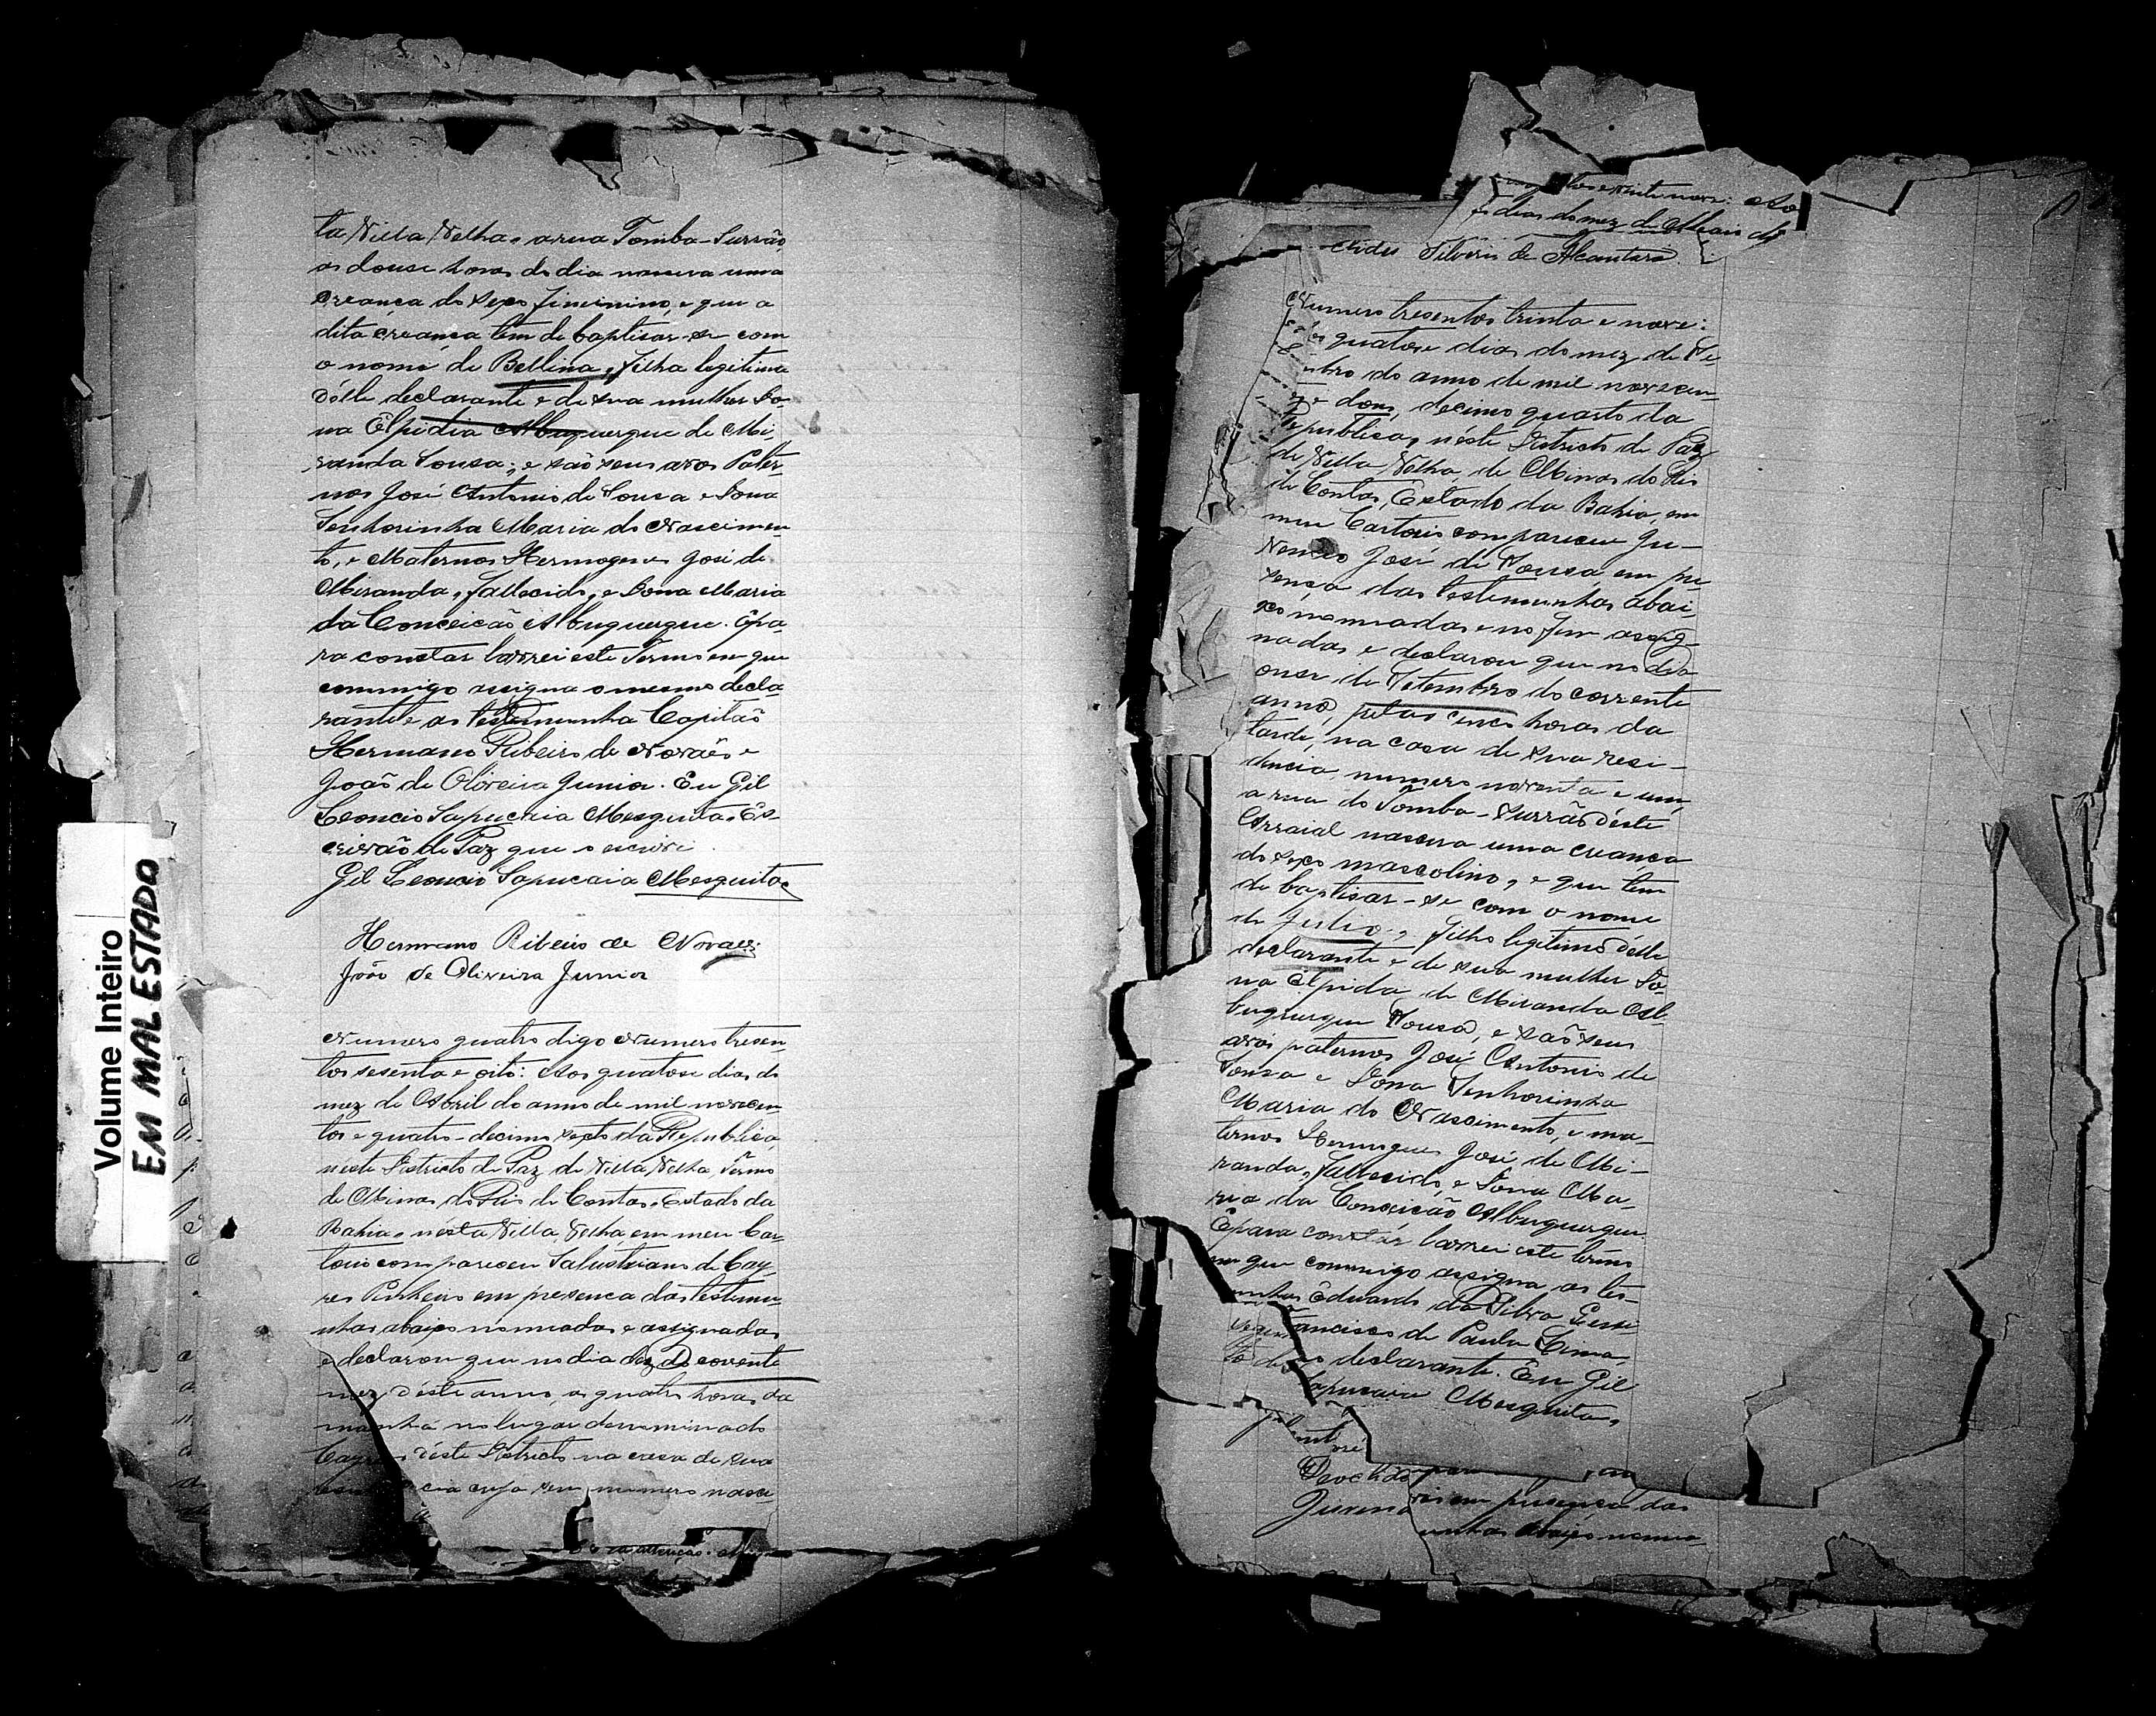 ta Villa Velha, a rua Tomba-Surrão,
as douse horas do dia nasceu uma
creança do sexo feminino, e que a
dita creança tem de baptisar-se com
o nome de Bellina, filha legitima
d'elle declarante e de sua mulher Do-
na Elpidia Albuquerque de Mi-
randa Sousa; e são seus avos Pater-
nos José Antonio de Sousa e Dona
Senhorinha Maria do Nascimen-
to, e Maternos Hermogenes José de
Miranda, fallecido, e Dona Maria
da Conceição Albuquerque. E pa-
ra constar lavrei este Termo em que
commigo assigna o mesmo decla-
rante e as testemunha Capitão
Hermano Ribeiro de Novaes e
João de Oliveira Junior. Eu Gil
Leoncio Sapucaia Mesquita, Es-
crivão de Paz que o escrivi.
Gil Leoncio Sapucaia Mesquita
Hermano Ribeiro de Novaes
João de Oliveira Junior
Numero quatro digo Numero tresen-
tos sesenta e oito: Aos quatorse dias do
mez de Abril do anno de mil novecen-
tos e quatro-decimo sexto da Republica,
neste Districto de Paz de Villa Velha, Termo
de Minas do Rio de Contas, Estado da
Bahia, nesta Villa Velha, em meu Car-
torio compareceu Salustiano de Cay-
res Pinheiro em presença das testemu-
nhas abaixo nomeadas e assignadas
e declarou que no dia dez do corrente
mez d'este anno, as quatro horas da
manhã no lugar denominado
d'este Districto na casa de sua
cia cuja sem numero nasce-
Volume Inteiro
EM MAL ESTADO
dias do mez de Maio do
Silverio de Alcantara
Numero tresentos trinta e nove:
quatorse dias do mez de Se-
mbro do anno de mil novecen-
e dous, decimo quarto da
Republica, néste Districto de Paz
de Villa Velha, de Minas do Rio
de Contas, Estado da Bahia, em
meu Cartorio compareceu Ju-
José de Sousa, em pre-
sença das testemunhas abai-
xo nomeadas e no fim assig-
nadas e declarou que no dia
onse de Setembro do corrente
anno, pelas cinco horas da
tarde, na casa de sua resi-
dencia, numero noventa e um,
a rua do Tomba-Surrão d'éste
Arraial nasceu uma creança
do sexo masculino, e que tem
de baptisar-se com o nome
de filho legitimo d'élle
declarante e de sua mulher Do-
na Elpida de Miranda Al-
buquerque Sousa, e são seus
avós paternos José Antonio de
Sousa e Dona Senhorinha
Maria do Nascimento, e ma-
ternos José de Mi-
randa, fallecido, e Dona Ma-
ria da Conceição Albuquerque
E para constar lavrei este termo
em que commigo assigna as tes-
unhas Eduardo da Silva
Francisco de Paula Lima,
declarante. Eu Gil
Sapucaia Mesquita,
em presença das
unhas abaixo nomea-